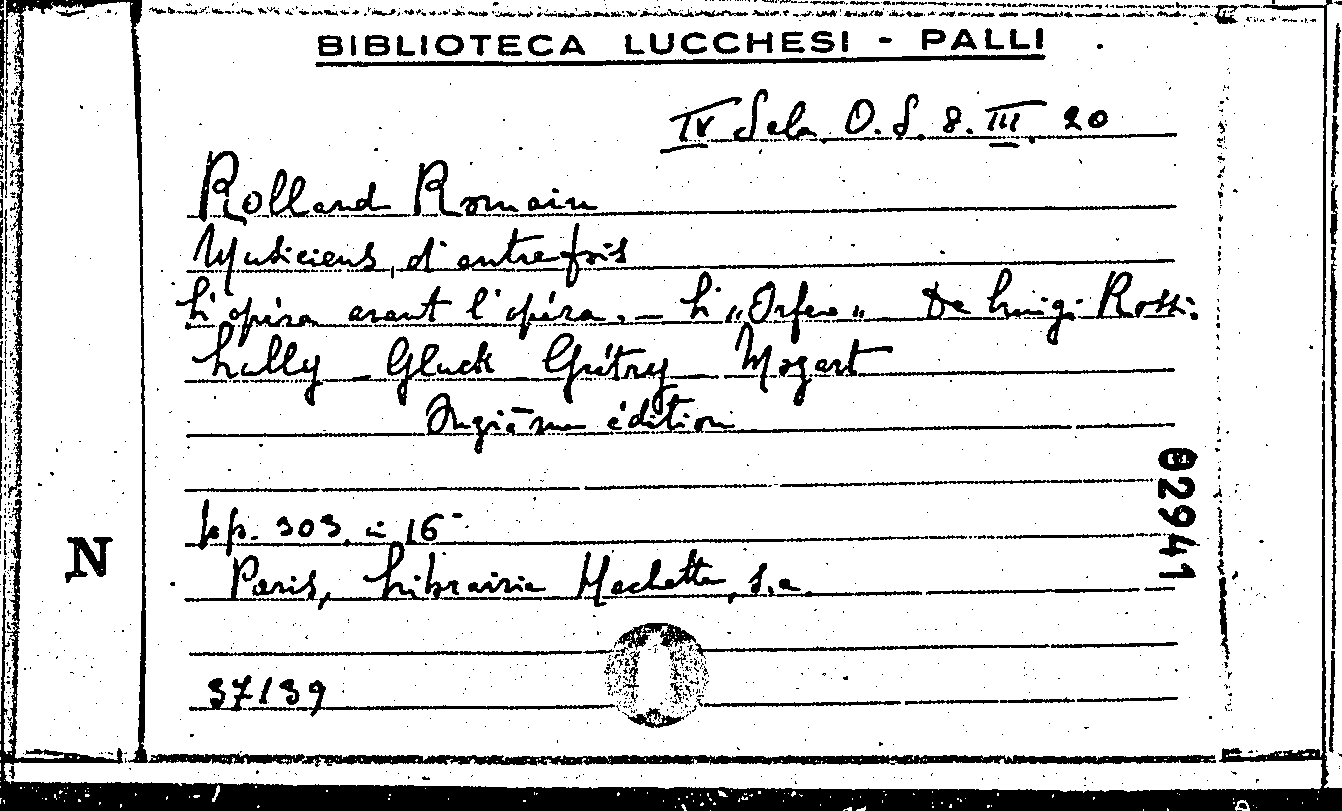 BIBLIOTECA LUCCHESI - PALLI
IV Sala O. S. 8. III. 20
Rolland Romain
Musiciens d'autrefois
L'opéra avant l'opéra. - L'"Orfeo" De Luigi Rossi.
Lully - Gluck Grétry - Mozart
Onzième édition
pp. 303. in 16-
Paris, Librairie Hachette, s.a.
37139
N
02941